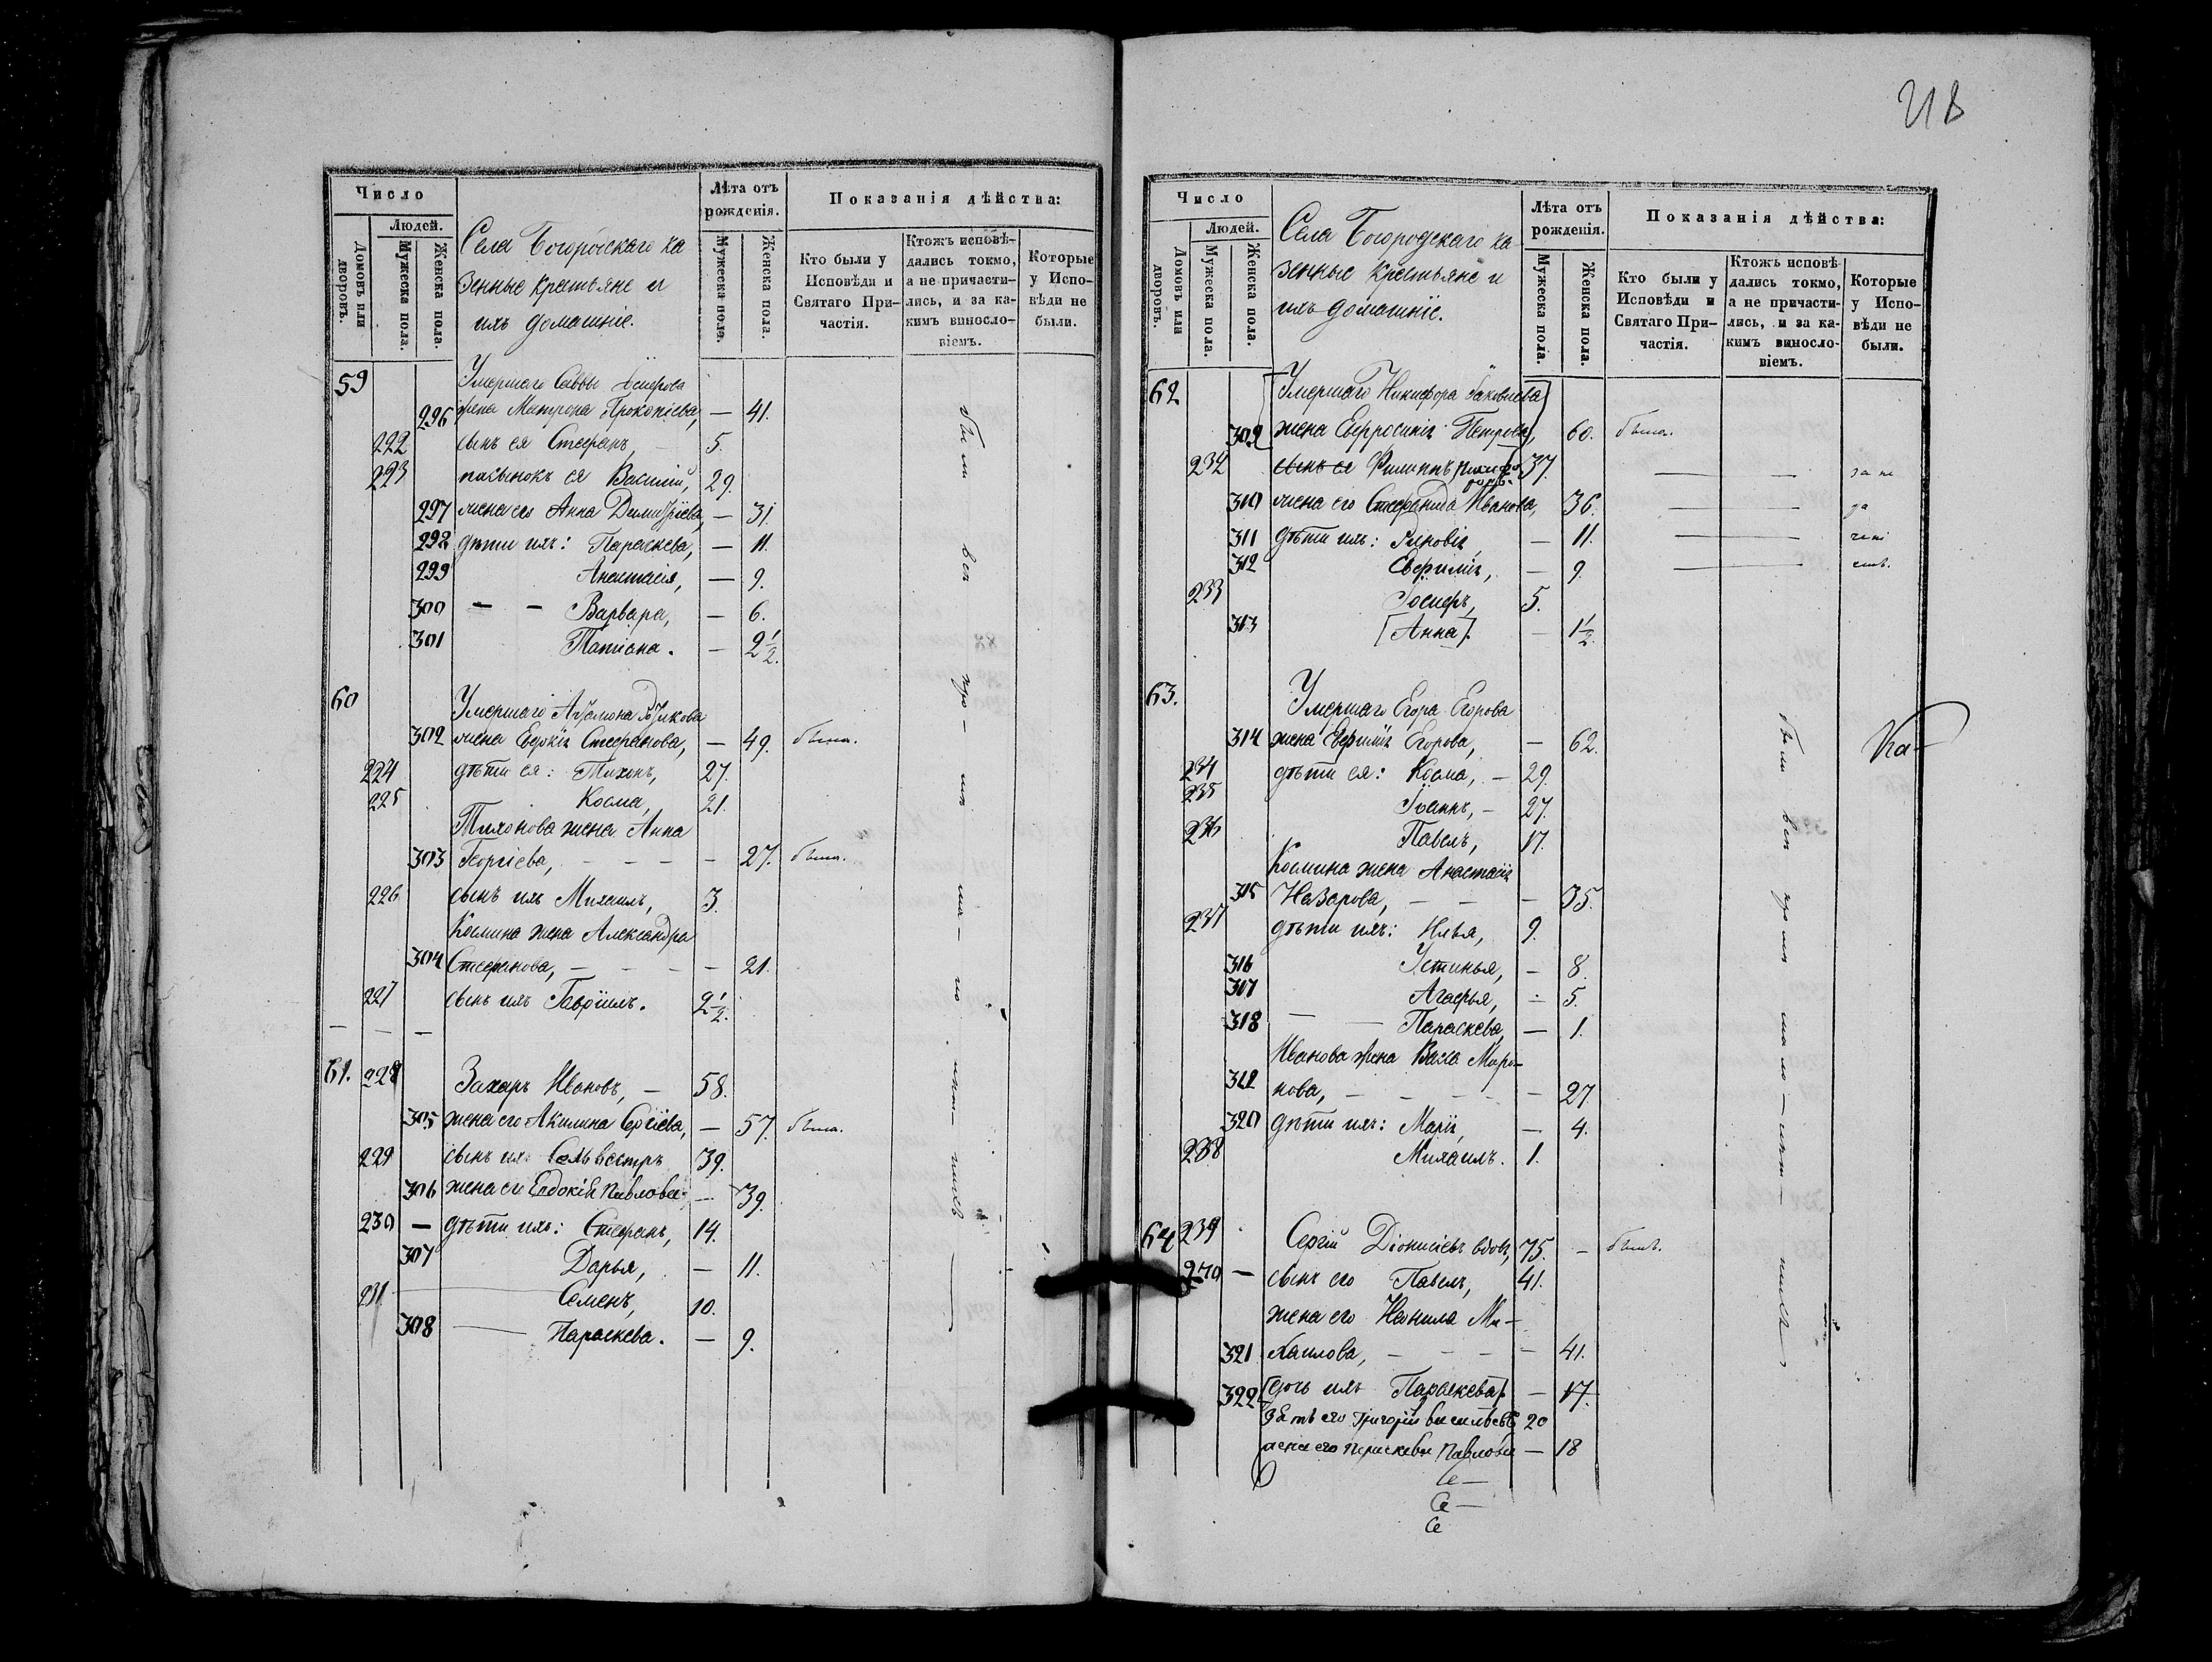 Число
Людей.
Домовъ или дворовъ.
Мужеска пола.
Женска пола.
Села Богородскаго ка
зенные крестьяне и
ихъ домашніе.
Лѣта отъ рожденія.
Мужеска пола.
Женска пола.
Показанія дѣйства:
Кто были у Исповѣди и Святаго При-частія.
Ктожъ исповѣ-дались токмо, а не причасти-лись, и за ка-кимъ винословіемъ.
Которые у Испо-вѣди не были.
59 Умершаго Саввы
296 жена Матрона Прокопіева, — 41.
222 сынъ ея Стефанъ, — 5.
223 пасынокъ ея Василій, 29.
297 жена его Анна Димитріева, — 31.
298 дѣти ихъ: Параскева, — 11.
299 Анастасія, — 9.
300 — — Варвара, — 6.
301 Татіана. — 2½.
60 Умершаго
302 жена Евдокія Стефанова, — 49. была.
224 дѣти ея: Тихонъ, 27.
225 Косма, 21.
Тихонова жена Анна
303 Георгіева, — — — — 27. была.
226 сынъ ихъ Михаилъ, 3.
Космина жена Александра
304 Стефанова, — — — — 21.
227 сынъ ихъ Гавріилъ. 2½.
— — —
61. 228 Захаръ Ивановъ, — 58.
305 жена его Акилина Сергіева, — 57. была.
229 сынъ ихъ Сельвестръ 39.
306 жена ег Евдокія Павлова — 39.
230 — дѣти ихъ: Стефанъ, 14.
307 Дарья, — 11.
231 Семенъ, 10.
308 Параскева. — 9.
218
Число
Людей.
Домовъ или дворовъ.
Мужеска пола.
Женска пола.
Села Богородскаго ка
зенные крестьяне и
ихъ домашніе.
Лѣта отъ рожденія.
Мужеска пола.
Женска пола.
Показанія дѣйства:
Кто были у Исповѣди и Святаго При-частія.
Ктожъ исповѣ-дались токмо, а не причасти-лись, и за ка-кимъ винословіемъ.
Которые у Испо-вѣди не были.
62 [Умершаго Никифора Яковлева
309 жена Евфросинія Петрова], 60. была.
232 сынъ ея Филиппъ 37. — —
310 жена его Стефанида Иванова, 36. — —
311 дѣти ихъ: — 11. — —
312 Евфимія, — 9.
233 Іосифъ, 5.
313 [Анна]. — 1½.
63. Умершаго Егора Егорова
314 жена Евфимія Егорова, — 62.
234 дѣти ея: Косма, — 29.
235 Іоаннъ, — 27.
236 Павелъ, 17.
Космина жена Анастасія
315 Назарова, — — — 35.
237 дѣти ихъ: Илья, 9.
316 Устинья, — 8.
317 Агафья, — 5.
318 — — Параскева, — 1.
Иванова жена Васса Миро-
нова, — — — — 27
320 дѣти ихъ: Марія, — 4.
238 Михаилъ. 1.
Ка-
64 239 Сергій Діонисіевъ вдовъ, 75. — былъ.
240 — сынъ его Павелъ, 41.
жена его Неонила Ми-
321 хаилова, — — — — 41.
322 [дочь ихъ Параскева]. — 17.
Зять его Григорій Васильевъ 20
жена его Параскева Павлова — 18
Се —
Се —
Се